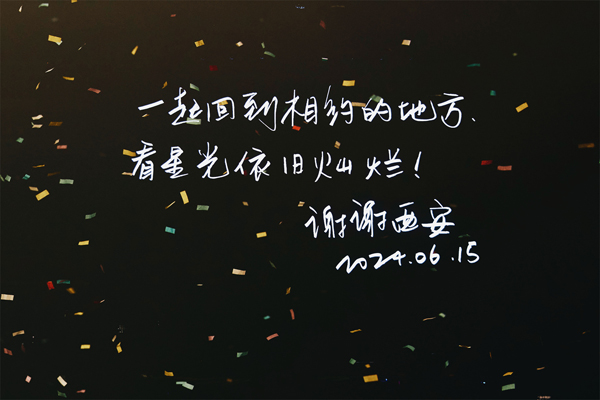 一起回到相约的地方、
看星光依旧灿烂!
谢谢西安
2024.06.15